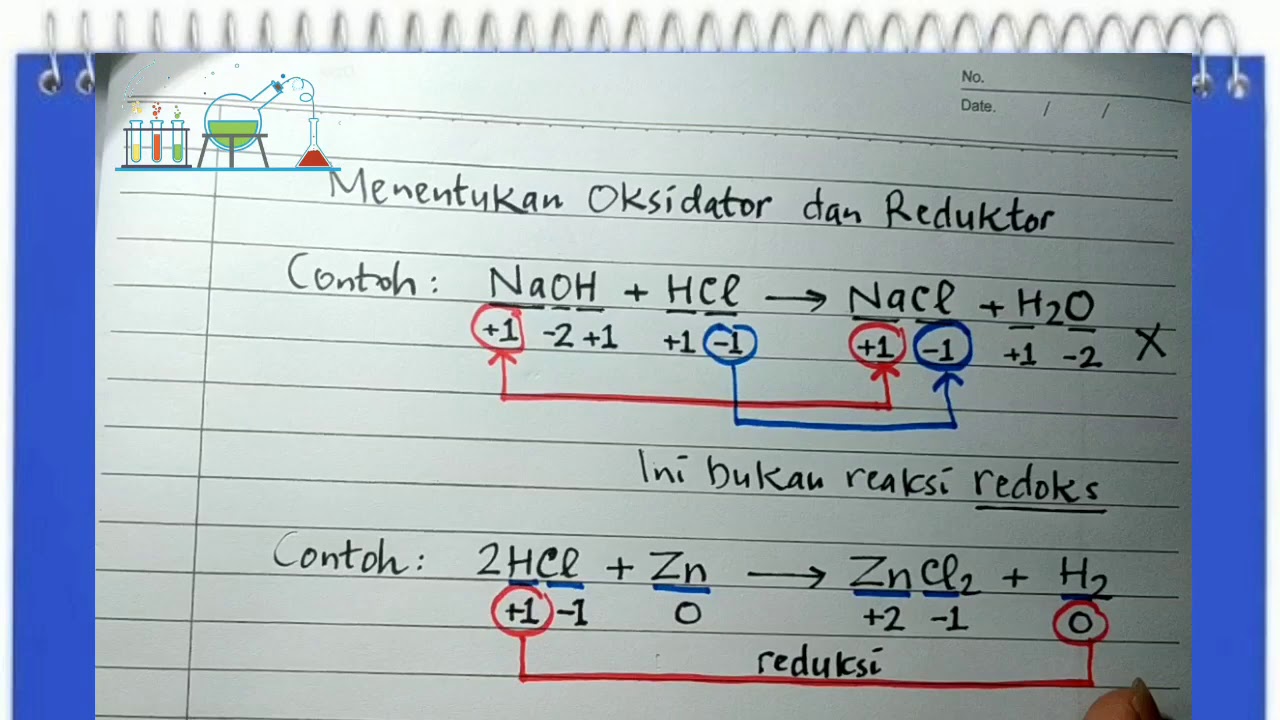 No.
Date. / /
Menentukan Oksidator dan Reduktor
Contoh: NaOH + HCl → NaCl + H₂O
+1 -2 +1 +1 -1 +1 -1 +1 -2 X
Ini bukan reaksi redoks
Contoh: 2HCl + Zn → ZnCl₂ + H₂
+1 -1 0 +2 -1 0
reduksi